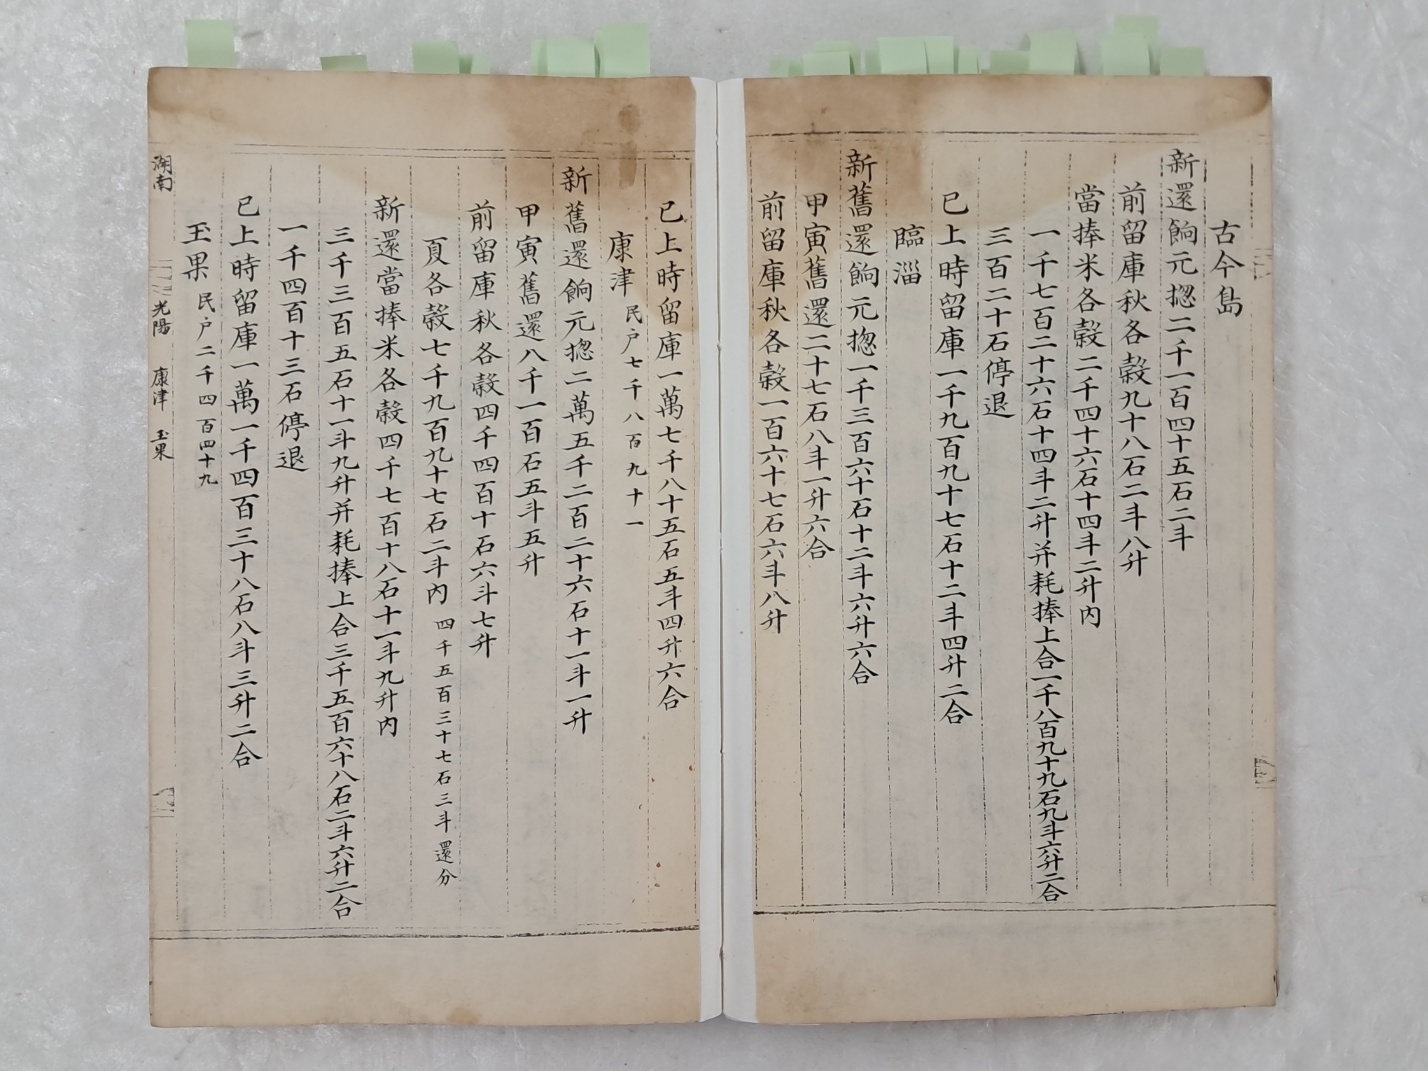 古今島
新還餉元摠二千一百四十五石二斗
前留庫秋各穀九十八石二斗八升
當捧米各穀二千四十六石十四斗二升內
一千七百二十六石十四斗二升并耗捧上合一千八百九十九石九斗六升二合
三百二十石停退
已上時留庫一千九百九十七石十二斗四升二合
臨淄
新舊還餉元摠一千三百六十石十二斗六升六合
甲寅舊還二十七石八斗一升六合
前留庫秋各穀一百六十七石六斗八升
已上時留庫一萬七千八十五石五斗四升六合
康津 民户七千八百九十一
新舊還餉元摠二萬五千二百二十六石十一斗一升
甲寅舊還八千一百石五斗五升
前留庫秋各穀四千四百十石六斗七升
夏各穀七千九百九十七石二斗內 四千五百三十七石三斗還分
新還當捧米各穀四千七百十八石十一斗九升內
三千三百五石十一斗九升并耗捧上合三千五百六十八石二斗六升二合
一千四百十三石停退
已上時留庫一萬一千四百三十八石八斗三升二合
玉果 民户二千四百四十九
湖南 光陽 康津 玉果